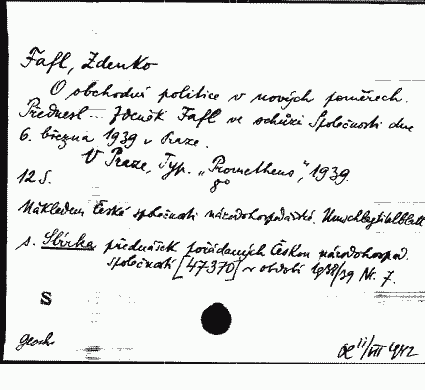 Fafl, Zdenko
O obchodní politice v nových poměrech.
Přednesl... Zdeněk Fafl ve schůzi Společnosti dne
6. března 1939 v Praze.
V Praze, Typ. „Prometheus", 1939.
8°
12 S.
Nákladem České společnosti národohospodářské. Umschlagtitelblatt
s. Sbírka přednášek pořádaných Českou národohospod.
společností [47370] v období 1938/39 Nr. 7.
S